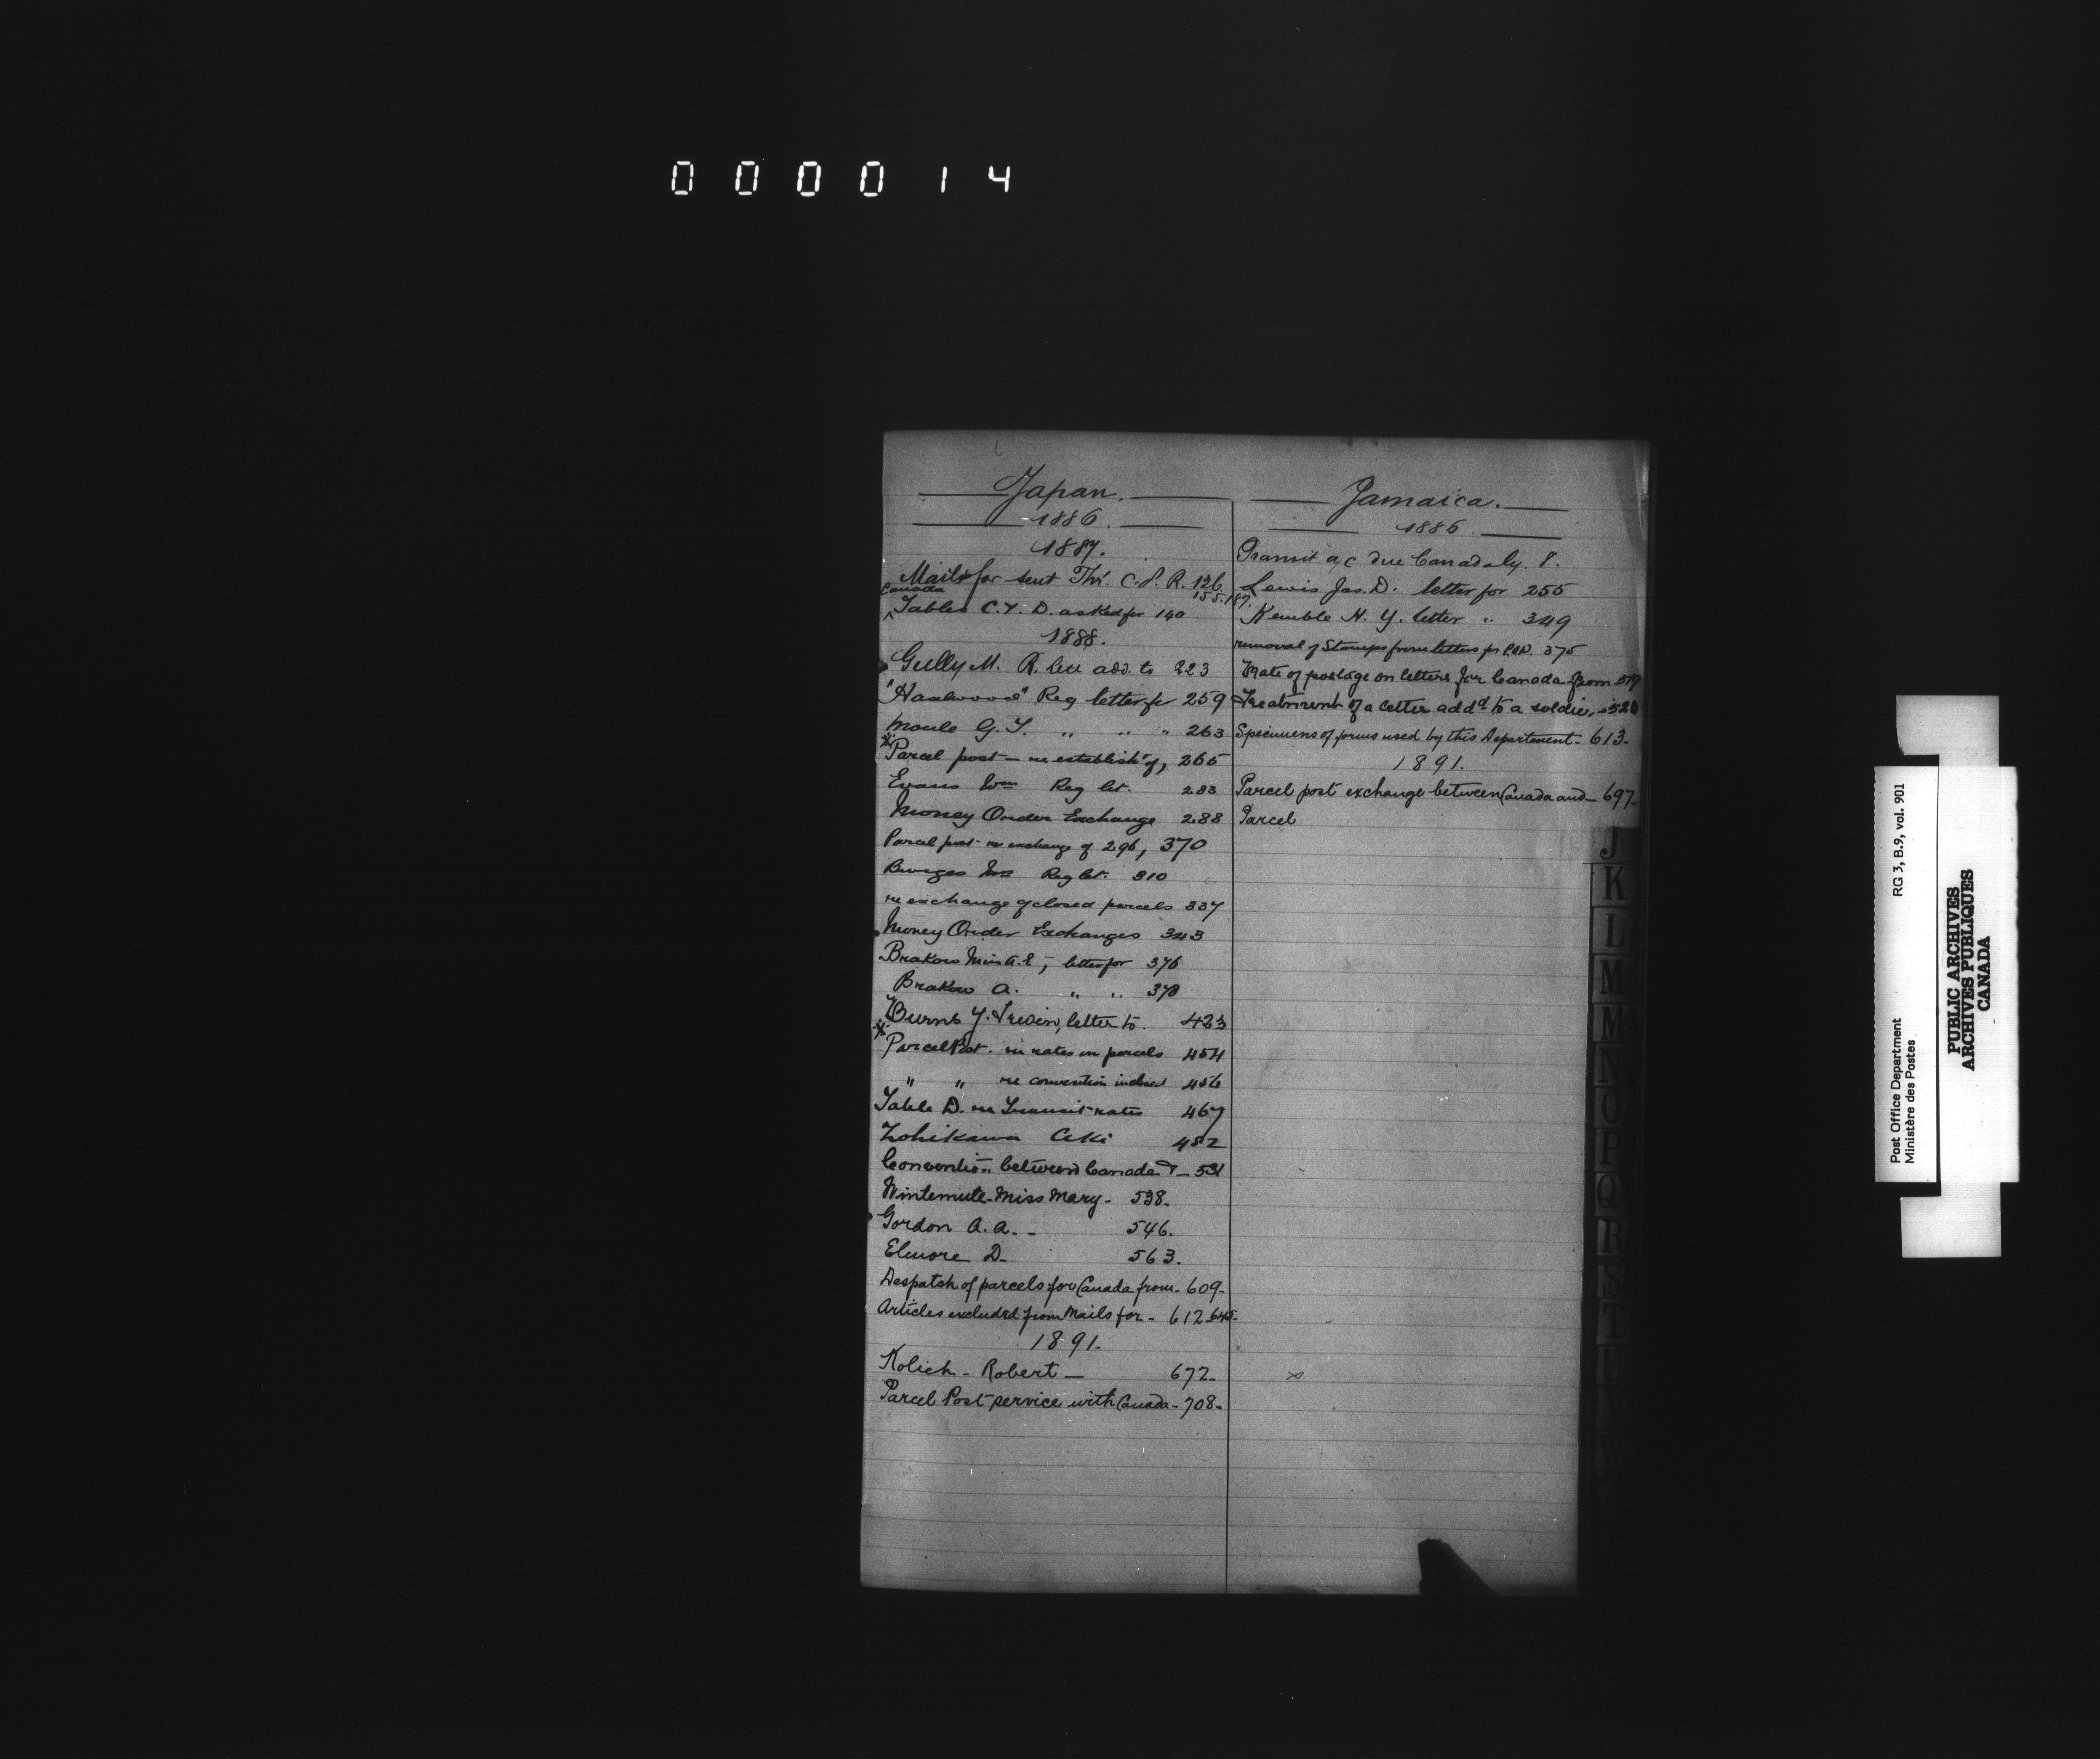 000014
Japan.
1886.
1887.
Mails for sent Thr. C.P.R. 126
155.187.
Canada
Tables C.Y.D. asked for 140
1888.
Gully M. R. let. add. to 223
"Haslwood" Reg letter for 259
Moule G.Y. " " " 263
Parcel post — re establisht of, 265
Evans Wm Reg let. 283
Money Order Exchange 288
Parcel post re exchange of 296, 370
Burges Reg let. 310
re exchange of closed parcels 337
Money Order Exchanges 343
Brakow Miss A.E, letter for 376
Brakow A. " " 378
Burns Y. Irwin, letter to. 423
Parcel Post. re rates on parcels 454
" " re convention 456
Table D. re Transit rates 467
Aki 482
Convention between Canada & — 531
Wintemute Miss Mary - 538.
Gordon A.A. - 546.
Elmore D. 563.
Despatch of parcels for Canada from - 609 -
Articles excluded from Mails for - 612-645-
1891.
Kolich - Robert — 672 -
Parcel Post service with Canada - 708 -
Jamaica.
1886.
Transit a/c due Canada by. 8.
Lewis Jas. D. letter for 255
Kemble H. Y. letter " 349
removal of Stamps from letters for 375
Rate of postage on letters for Canada from 519
Treatment of a letter addd to a soldier, 520
Specimens of forms used by this Department - 613 -
1891.
Parcel post exchange between Canada and — 697 -
Parcel
J
K
L
M
M
N
O
P
Q
R
S
T
Post Office Department RG 3, B.9, vol. 901
Ministère des Postes
PUBLIC ARCHIVES
ARCHIVES PUBLIQUES
CANADA